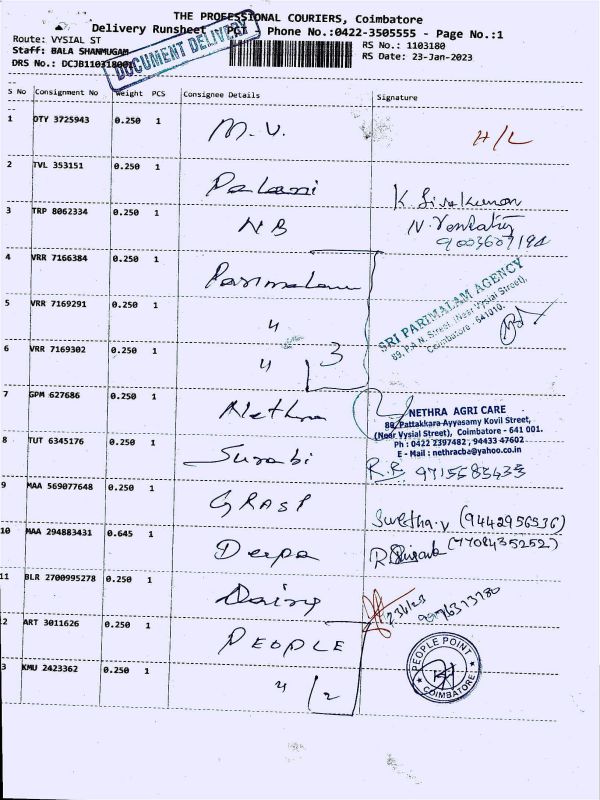 THE PROFESSIONAL COURIERS, Coimbatore
Delivery Runsheet Phone No.:0422-3505555 - Page No.:1
DOCUMENT DELIVERY
Route: VYSIAL ST
RS No.: 1103180
Staff: BALA SHANMUGAM
RS Date: 23-Jan-2023
DRS No.: DCJB1103180001
S No Consignment No Weight PCS Consignee Details Signature
1 OTY 3725943 0.250 1 M.V. H/L
2 TVL 353151 0.250 1 Palani K Sivakumar
3 TRP 8062334 0.250 1 NB N.
4 VRR 7166384 0.250 1 Parimalam
SRI PARIMALAM AGENCY
89, P.A.N. Street, (Near Vysial Street),
Coimbatore - 641010.
5 VRR 7169291 0.250 1 "
6 VRR 7169302 0.250 1 " 3
7 GPM 627686 0.250 1 Nethra
NETHRA AGRI CARE
88, Pattakkara Ayyasamy Kovil Street,
(Near Vysial Street), Coimbatore - 641 001.
Ph : 0422 2397482 , 94433 47602
E - Mail : nethracba@yahoo.co.in
8 TUT 6345176 0.250 1 Surabi R.B 9715585435
9 MAA 569077648 0.250 1 GRASP Swetha.v (9442956536)
10 MAA 294883431 0.645 1 Deepa (7708435252)
11 BLR 2700995278 0.250 1 Dairy 23/1/23
2 ART 3011626 0.250 1 PEOPLE
PEOPLE POINT
COIMBATORE
3 KMU 2423362 0.250 1 " 2